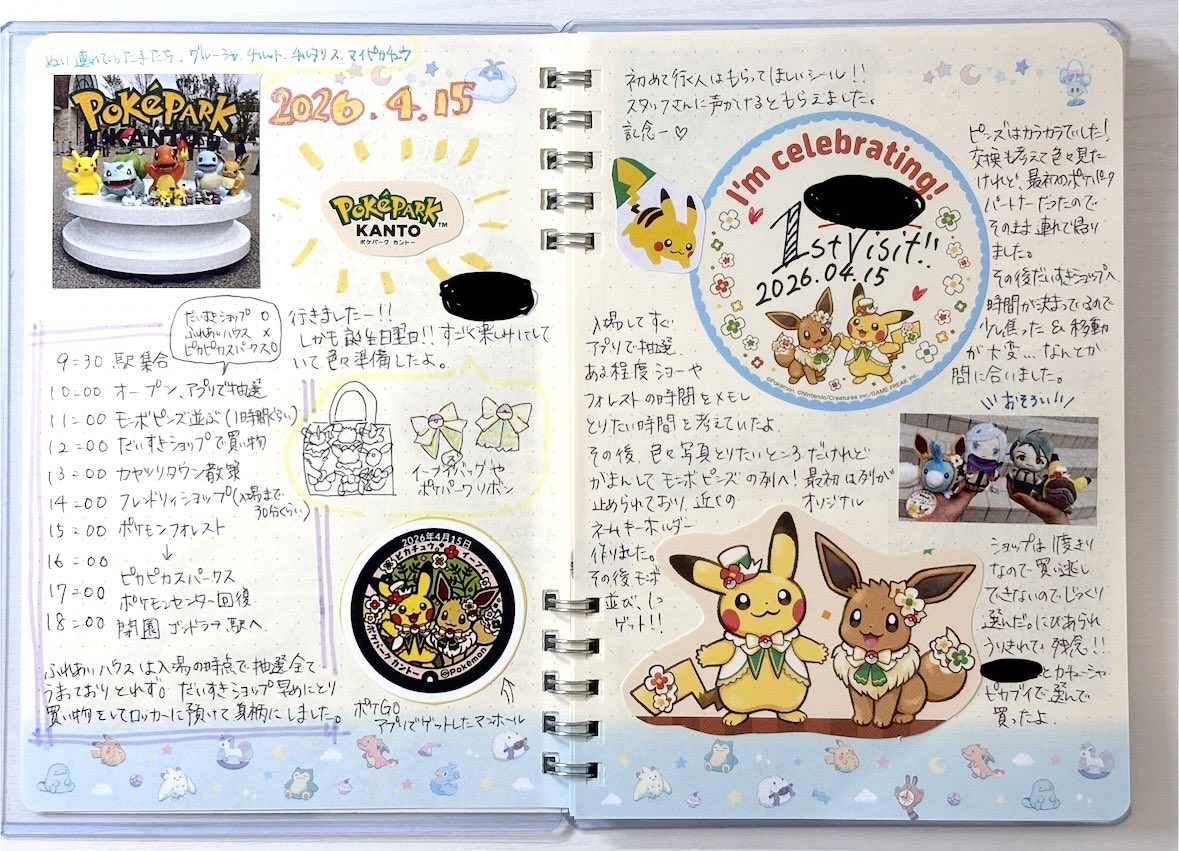 ぬい連れていったまたち、グルーシャ、チルット、チルタリス、マイピカチュウ
POKÉPARK
KANTO
2026.4.15
POKÉPARK
KANTO™
ポケパーク カントー
行きましたー!!
しかも誕生日翌日!! すごく楽しみにして
いて色々準備したよ。
だいすきショップ O
ふれあいハウス ×
ピカピカスパークスO
9:30 駅集合
10:00 オープン、アプリで抽選
11:00 モンボピンズ並ぶ(1時間くらい)
12:00 だいすきショップで買い物
13:00 カヤツリタウン散策
14:00 フレンドリィショップ(入場まで
30分くらい)
15:00 ポケモンフォレスト
16:00 ↓
ピカピカスパークス
17:00 ポケモンセンター回復
18:00 閉園 ゴンドラで駅へ
イーブイバッグや
ポケパークリボン
ふれあいハウスは入場の時点で抽選全て
うまっておりとれず。だいすきショップ早めにとり
買い物をしてロッカーに預けて身軽にしました。
2026年4月15日
ピカチュウ イーブイ
ポケパーク カントー
©Pokémon
ポケGO
アプリでゲットしたマンホール
初めて行く人はもらってほしいシール!!
スタッフさんに声かけするともらえました。
記念一♡
I'm celebrating!
1st Visit!!
2026.04.15
©Pokémon. ©Nintendo/Creatures Inc./GAME FREAK inc.
入場してすぐ
アプリで抽選。
ある程度ショーや
フォレストの時間をメモし
とりたい時間を考えていたよ。
その後、色々写真とりたいところだけれど
がまんしてモンボピンズの列へ! 最初は列が
止められており、近くの オリジナル
ネームキーホルダー
作りました。
その後モンボ
並び、
ゲット!!
ピンズはカラカラでした!
交換も考えて色々見た
けれど、最初のポケパーク
パートナーだったので
そのまま連れて帰り
ました。
その後だいすきショップへ
時間が決まっているので
少し焦った & 移動
が大変…なんとか
間に合いました。
おそろい
ショップは1度きり
なので買い逃し
できないのでじっくり
選んだ。にぴあられ
うりきれで残念!!
とカチューシャ
ピカブイで選んで
買ったよ